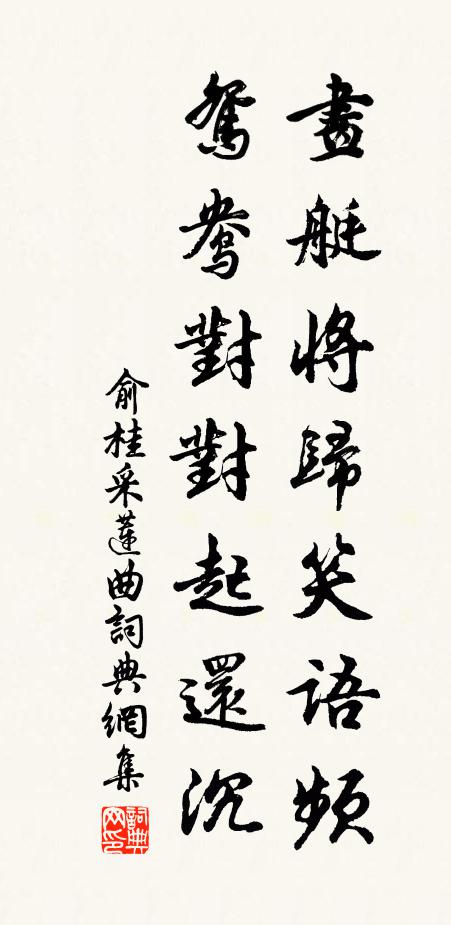 畫艇將歸笑語頻
鴛鴦對對起還沉
俞桂采蓮曲詞典網集
詞典网印